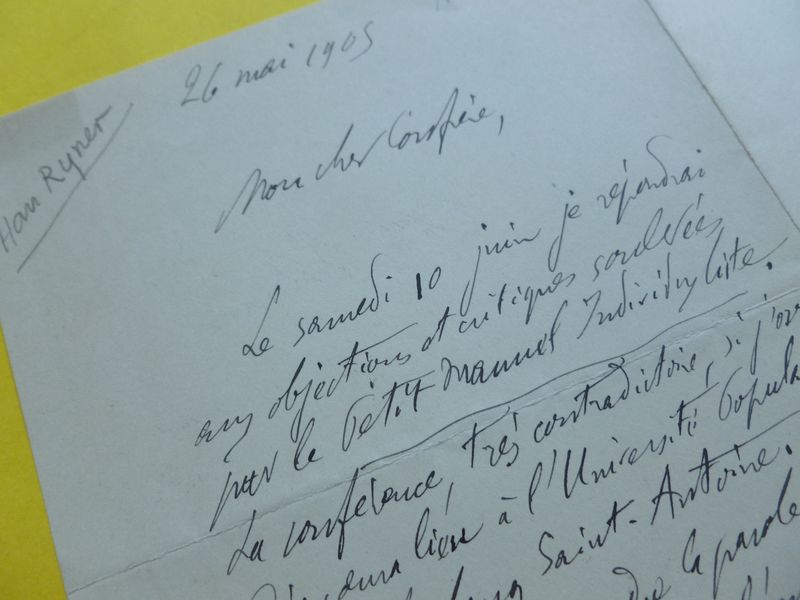 Han Ryner
26 mai 1905
Mon cher Confrère,
Le samedi 10 juin je répondrai
aux objections et critiques soulevées
par le Petit Manuel Individualiste.
La conférence, très contradictoire, si j'o
aura lieu à l'Université Popula
Saint-Antoine.
la parole